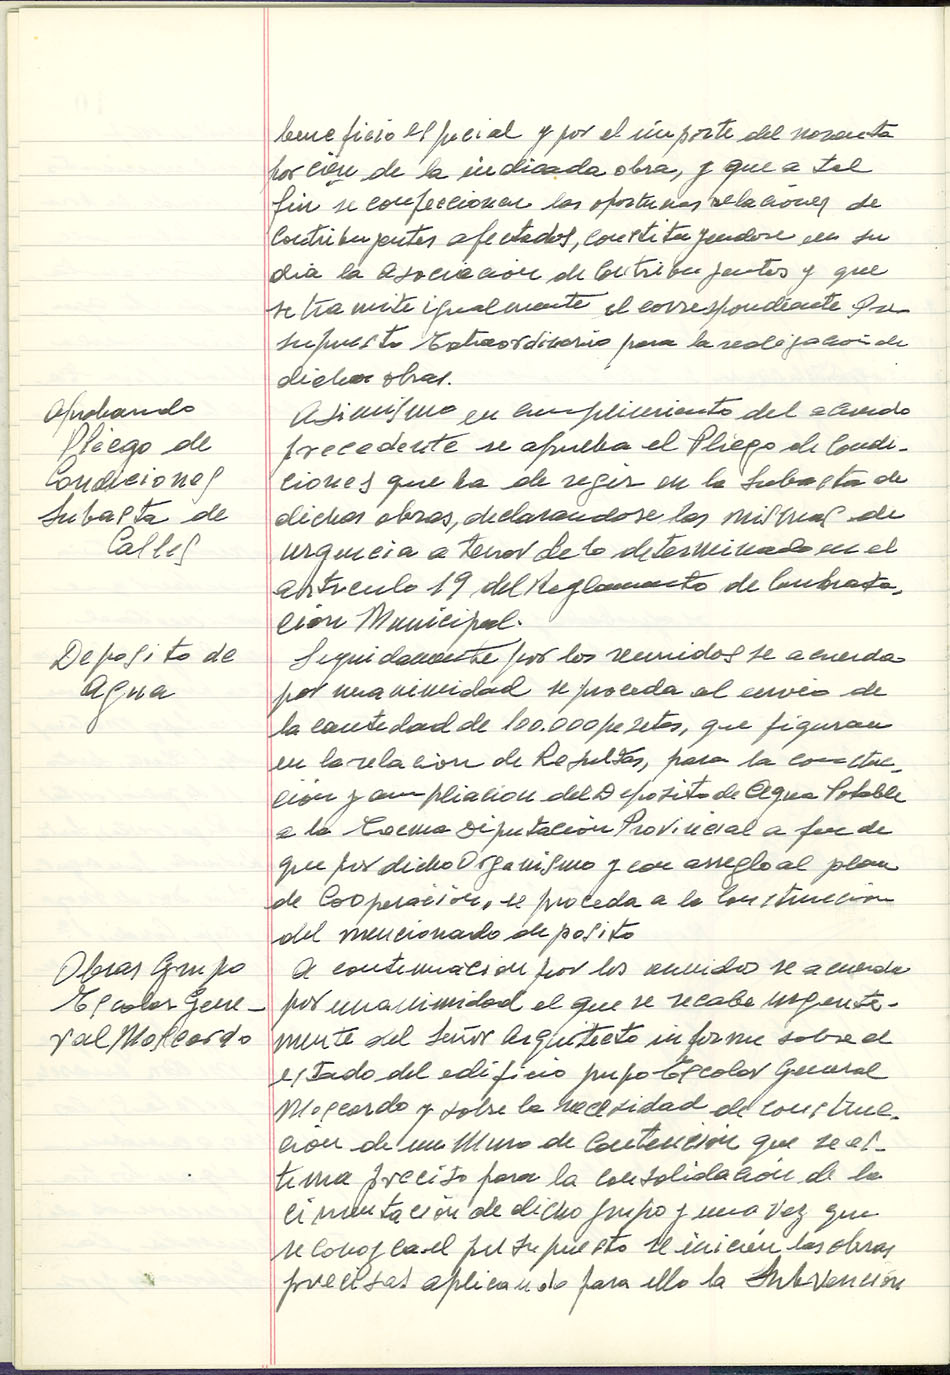 beneficio especial y por el importe del noventa
por cien de la indicada obra, y que a tal
fin se confeccionen las oportunas relaciones de
Contribuyentes afectados, constituyendose en su
dia la Asociacion de Contribuyentes y que
se tramite igualmente el correspondiente Pre-
supuesto Extraordinario para la realizacion de
dichas obras.
Aprobando
Pliego de
Condiciones
Subasta de
Calles
Asimismo en cumplimiento del acuerdo
precedente se aprueba el Pliego de Condi-
ciones que ha de regir en la Subasta de
dichas obras, declarandose las mismas de
urgencia a tenor de lo determinado en el
artículo 19 del Reglamento de Contrata-
ción Municipal.
Deposito de
Agua
Seguidamente por los reunidos se acuerda
por unanimidad se proceda al envio de
la cantidad de 100.000 pesetas, que figuran
en la relacion de Resultas, para la construc-
ción y ampliacion del Deposito de Agua Potable
a la Excma Diputación Provincial a fin de
que por dicho Organismo y con arreglo al plan
de Cooperación, se proceda a la Construccion
del mencionado deposito
Obras Grupo
Escolar Gene-
ral Moscardo
A continuacion por los reunidos se acuerda
por unanimidad el que se recabe urgente-
mente del Señor Arquitecto informe sobre el
estado del edificio grupo Escolar General
Moscardo y sobre la necesidad de construc-
ción de un Muro de Contención que se es-
tima preciso para la consolidación de la
cimentación de dicho grupo y una vez que
se conozca el presupuesto se inicien las obras
precisas aplicando para ello la Subvención